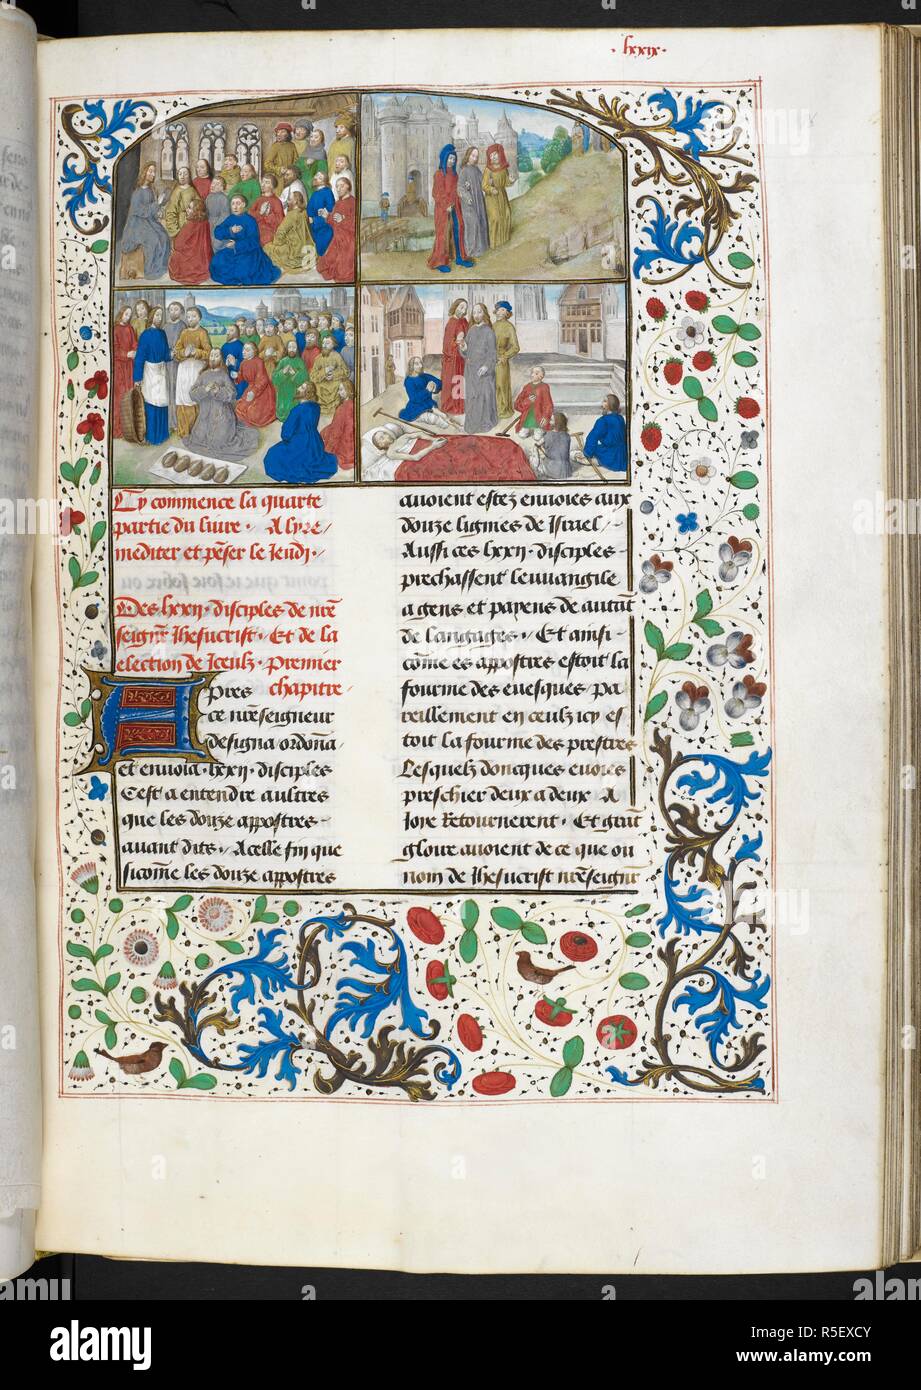 · lxxix ·
Cy commence la quarte
partie du livre · A lire
mediter et pēser le Jeudi ·
Des lxxij · disciples de nr̄e
seignr̄ Jhesucrist · Et de la
election de Iceulz · Premier
chapitre ·
Apres
ce nr̄eseigneur
designa / ordōna /
et envoia · lxxij · disciples
Cest a entendre aultres
que les douze appostres
avant dits · A celle fin que
sicōme les douze appostres
avoient estez envoies aux
douze lignies de Israel
Aussi ces lxxij · disciples
preschassent levvangile
a gens et payens de autāt
de langages · Et ainsi
cōme es appostres estoit la
fourme des evesques pa
reillement en ceulz icy es
toit la fourme des prestres
Lesquelz doncques envoies
preschier deux a deux A
Joye Retournerent · Et grāt
gloire avoient de ce que ou
nom de Jhesucrist nr̄eseignr̄
alamy stock photo
R5EXCY
www.alamy.com